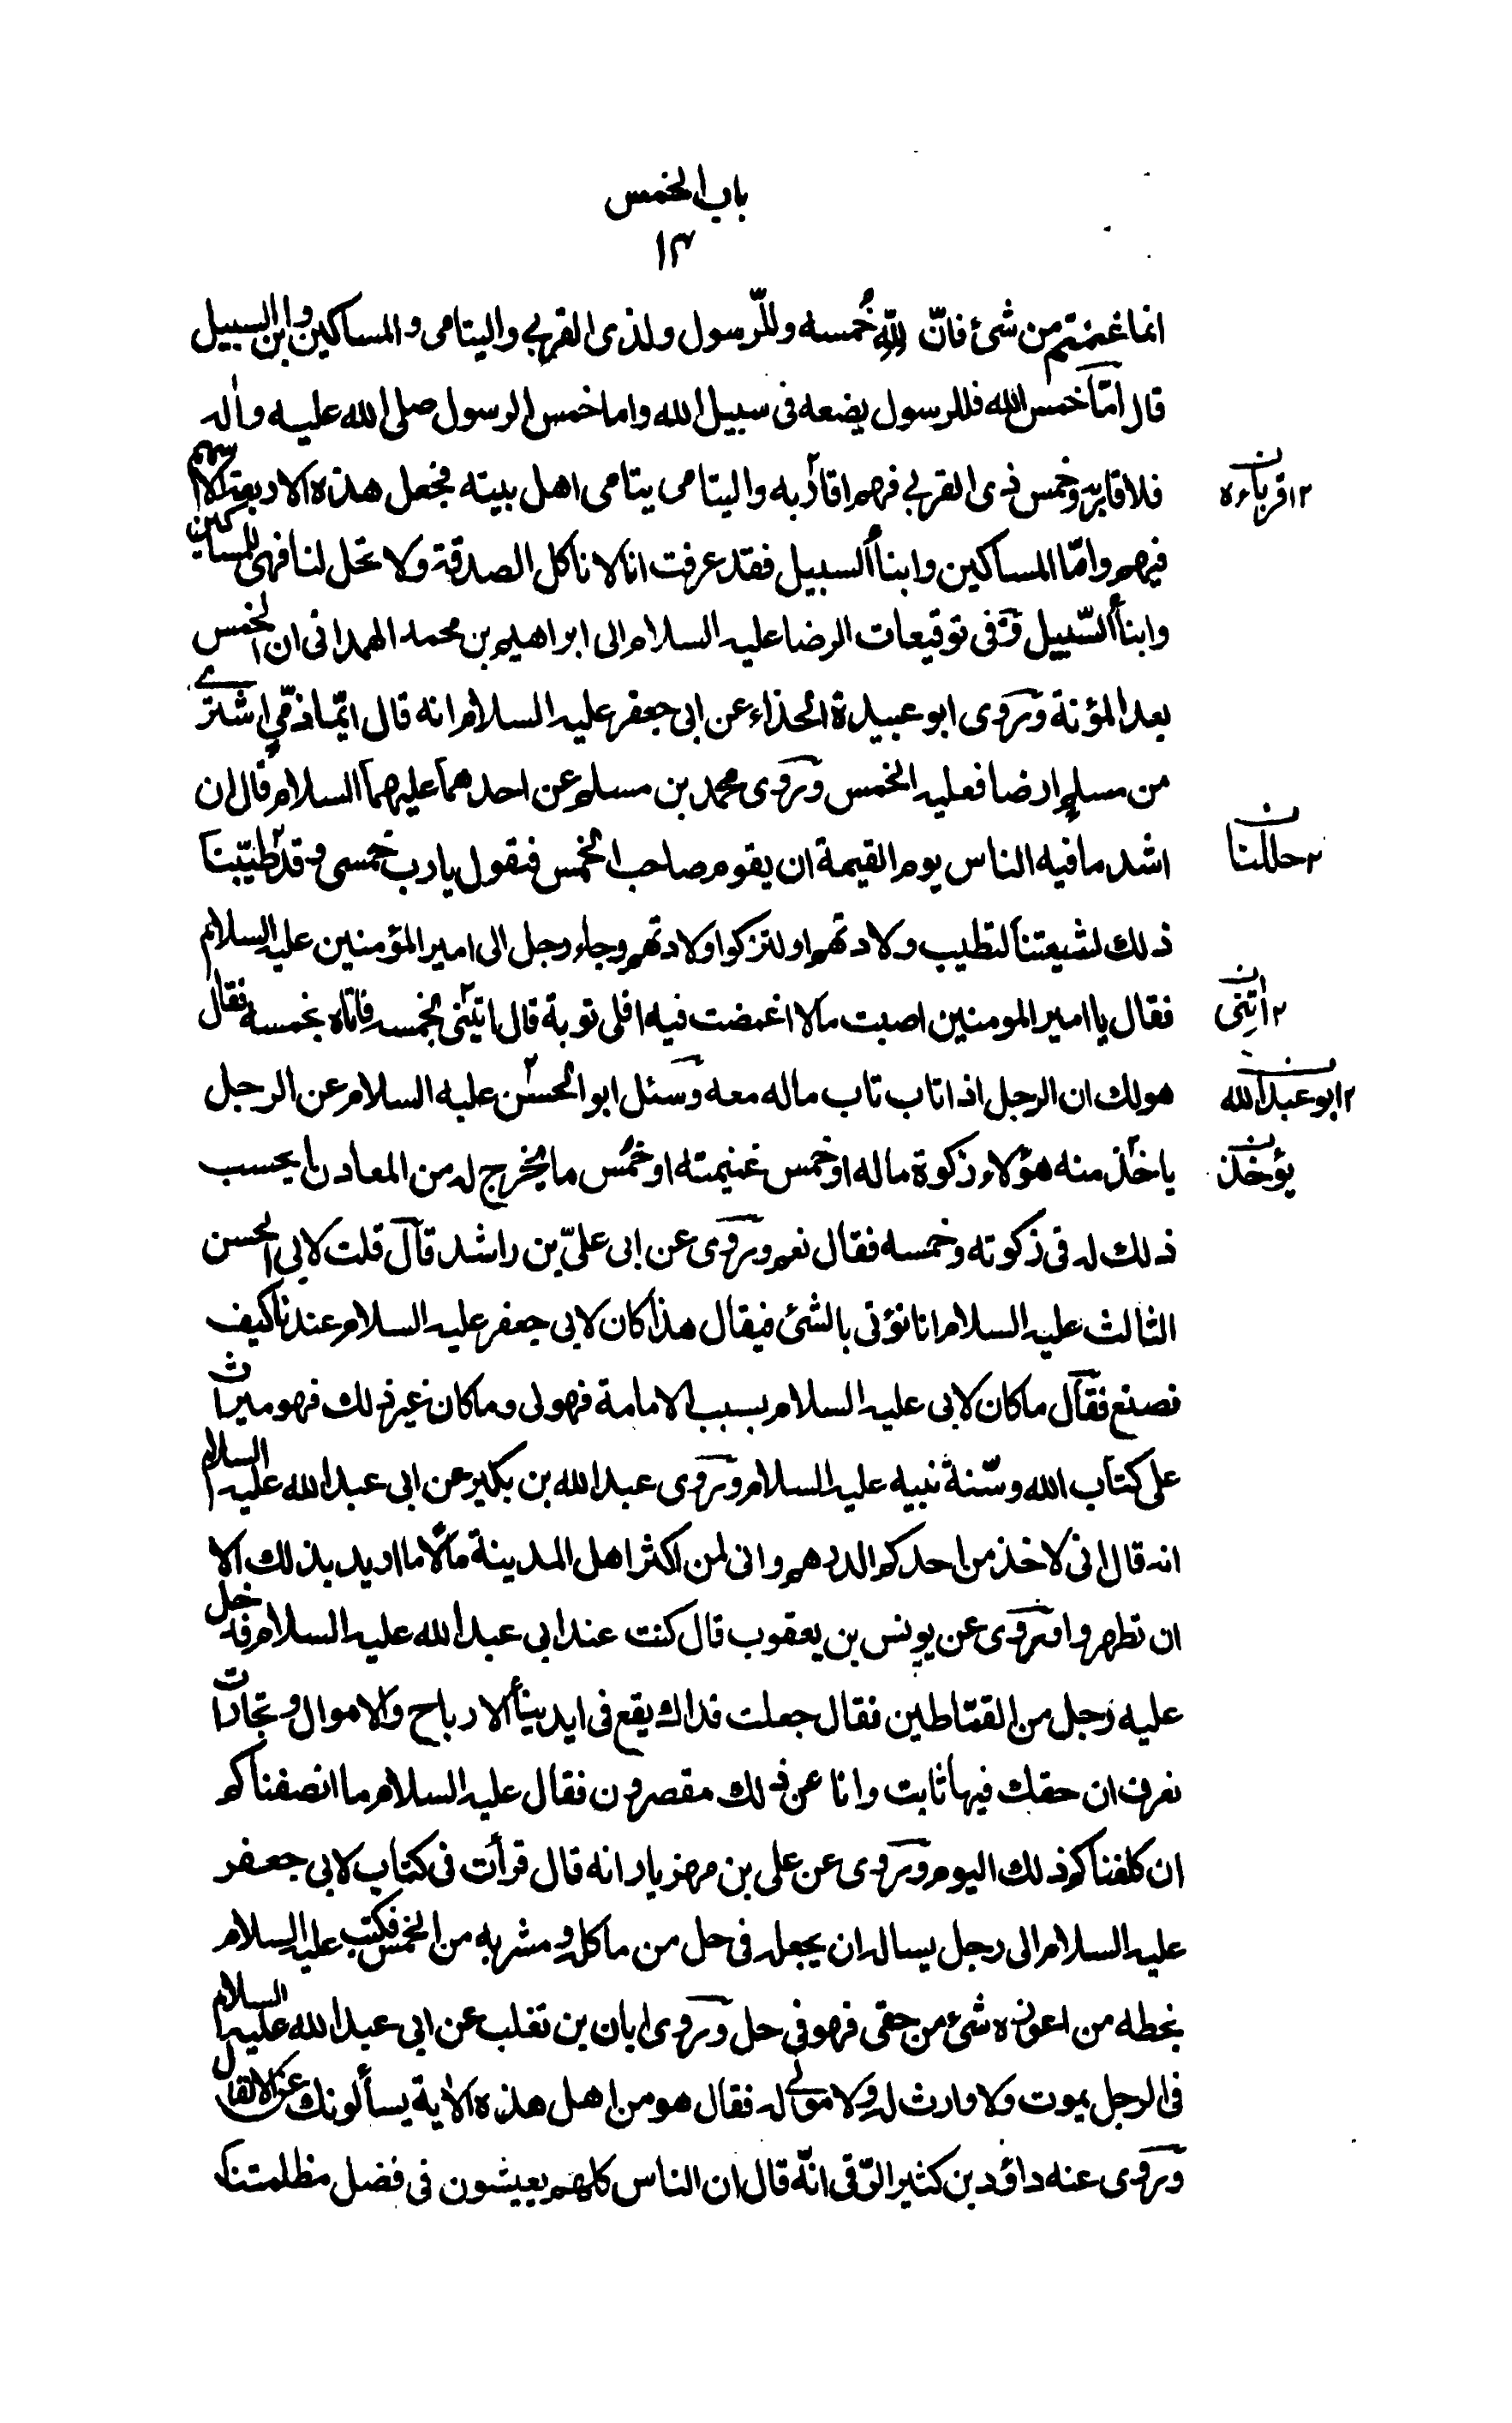 باب الخمس
١٣
انما غنمتم من شئ فانّ للّٰه خُمسه وللّرسول ولذى القربى واليتامى والمساكين وابن السبيل
قال امّا خمس الله فللرسول يضعه فى سبيل الله واما خمس الرسول صلى الله عليه واٰله
فلاقاربه وخمس ذى القربى فهم اقاربه واليتامى يتامى اهل بيته فجعل هذه الاربعة الاسهم
فيهم وامّا المساكين وابنأ السبيل فقد عرفت انا لا ناكل الصدقة ولا تحل لنا فهى للمساكين
وابنأ السّبيل وفى توقيعات الرضا عليه السلام الى ابراهيم بن محمد الهمدانى ان الخمس
بعد المؤنة وروى ابو عبيدة الحذاء عن ابى جعفر عليه السلام انه قال ايّما ذمّى اشترى
من مسلم ارضا فعليه الخمس وروى محمد بن مسلم عن احدهما عليهما السلام قال ان
اشد ما فيه الناس يوم القيمة ان يقوم صاحب الخمس فيقول يا رب خمسى وقد طيّبنا
ذلك لشيعتنا لتطيب ولادتهم او لتزكوا ولادتهم وجاء رجل الى امير المؤمنين عليه السلام
فقال يا امير المومنين اصبت مالا اغمضت فيه افلى توبة قال ايتنى بخمسه فاتاه بخمسه فقال
هو لك ان الرجل اذا تاب تاب ماله معه وسئل ابو الحسن عليه السلام عن الرجل
ياخذ منه هؤلاء زكوة ماله او خمس غنيمته او خمُس ما يخرج له من المعادن ايحسب
ذلك له فى زكوته وخمسه فقال نعم وروى عن ابى علىّ بن راشد قال قلت لابى الحسن
الثالث عليه السلام انا نؤتى بالشئ فيقال هذا كان لابى جعفر عليه السلام عندنا كيف
نصنع فقال ما كان لابى عليه السلام بسبب الامامة فهو لى وما كان غير ذلك فهو ميراث
على كتاب الله وسّنة نبيه عليه السلام وروى عبد الله بن بكير عن ابى عبد الله عليه السلام
انه قال انى لاخذ من احدكم الدرهم وانى لمن اكثر اهل المدينة مالًا ما اريد بذلك الا
ان تطهروا وروى عن يونس بن يعقوب قال كنت عند ابى عبد الله عليه السلام فدخل
عليه رجل من القمّاطين فقال جعلت فداك يقع فى ايدينأ الارباح والاموال وتجارات
نعرف ان حقك فيها ثابت وانا عن ذلك مقصرون فقال عليه السلام ما انصفناكم
ان كلفناكم ذلك اليوم وروى عن على بن مهزيار انه قال قرأت فى كتاب لابى جعفر
عليه السلام الى رجل يساله ان يجعله فى حل من ماكله ومشربه من الخمس فكتب عليه السلام
بخطه من اعوزه شئ من حقى فهو فى حل وروى ابان بن تغلب عن ابى عبد الله عليه السلام
فى الرجل يموت ولا وارث له ولا مولى له فقال هو من اهل هذه الاٰية يسألونك عن الانفال
وروى عنه داؤد بن كثير الرّقى انّه قال ان الناس كلهم يعيشون فى فضل مظلمتنا
٢ اقرباءه ن
٢ حللنا ن
٢ اتِنِى ن
٢ ابو عبد الله ن
يؤخذ ن